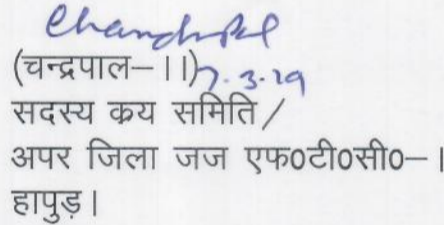 Chandrapal
(चन्द्रपाल–।।) 7.3.19
सदस्य क्रय समिति/
अपर जिला जज एफ०टी०सी०–।
हापुड़।